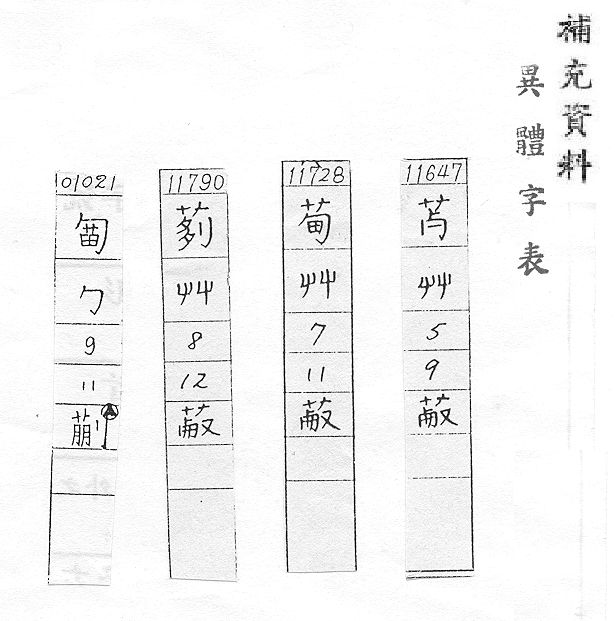 補充資料
異體字表
11647
艸
5
9
蔽
11728
艸
7
11
蔽
11790
艸
8
12
蔽
01021
勹
9
11